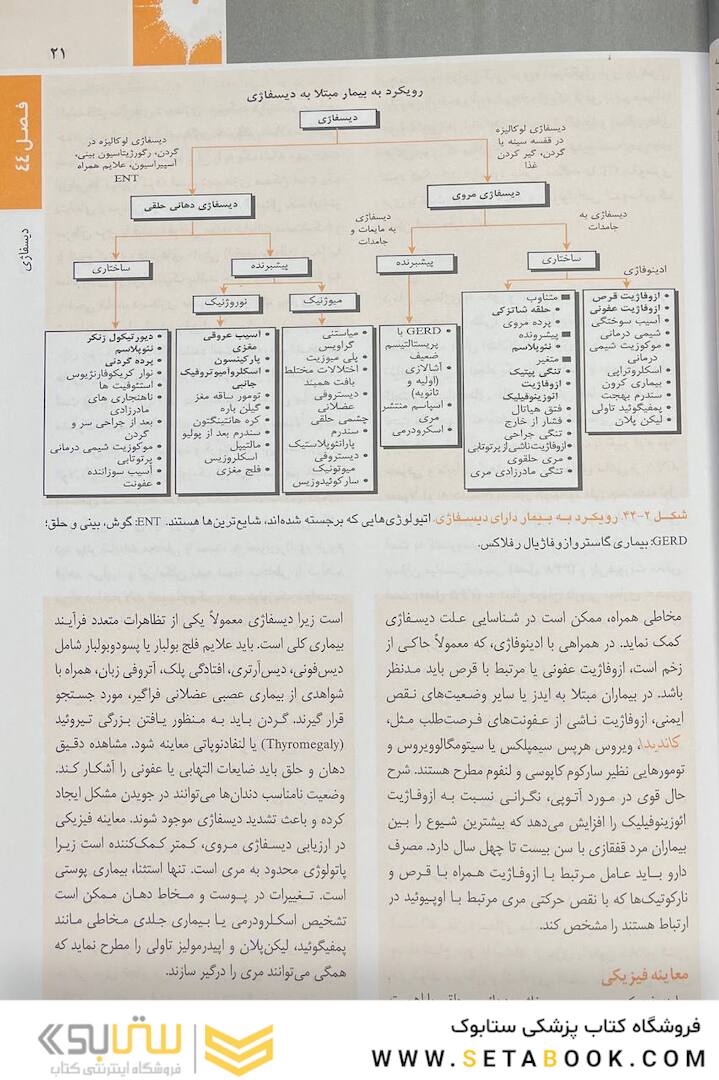 ۲۱
فصل ۴۴
دیسفاژی
رویکرد به بیمار مبتلا به دیسفاژی
دیسفاژی
دیسفاژی لوکالیزه
در قفسه سینه یا
گردن، گیر کردن
غذا
دیسفاژی لوکالیزه در
گردن، رگورژیتاسیون بینی،
آسپیراسیون، علایم همراه
ENT
دیسفاژی مروی
دیسفاژی دهانی حلقی
دیسفاژی به
جامدات
دیسفاژی
به مایعات و
جامدات
ساختاری
پیشبرنده
پیشبرنده
ساختاری
ادینوفاژی
میوژنیک
نوروژنیک
ازوفاژیت قرص
ازوفاژیت عفونی
آسیب سوختگی
شیمی درمانی
موکوزیت شیمی
درمانی
اسکلروتراپی
بیماری کرون
سندرم بهجت
پمفیگوئید تاولی
لیکن پلان
متناوب
حلقه شاتزکی
پرده مروی
پیشرونده
نئوپلاسم
متغیر
تنگی پپتیک
ازوفاژیت
ائوزینوفیلیک
فتق هیاتال
فشار از خارج
تنگی جراحی
ازوفاژیت ناشی از پرتوتابی
مری حلقوی
تنگی مادرزادی مری
GERD با
پریستالتیسم
ضعیف
آشالازی
(اولیه و
ثانویه)
اسپاسم منتشر
مری
اسکرودرمی
میاستنی
گراویس
پلی میوزیت
اختلالات مختلط
بافت همبند
دیستروفی
عضلانی
چشمی حلقی
سندرم
پارانئوپلاستیک
دیستروفی
میوتونیک
سارکوئیدوزیس
آسیب عروقی
مغزی
پارکینسون
اسکلروآمیوتروفیک
جانبی
تومور ساقه مغز
گیلن باره
کره هانتینگتون
سندرم بعد از پولیو
مالتیپل
اسکلروزیس
فلج مغزی
دیورتیکول زنکر
نئوپلاسم
پرده گردنی
نوار کریکوفارنژیوس
استئوفیت ها
ناهنجاری های
مادرزادی
بعد از جراحی سر و
گردن
موکوزیت شیمی درمانی
پرتوتابی
آسیب سوزاننده
عفونت
شکل ۲-۴۴. رویکرد به بیمار دارای دیسفاژی. اتیولوژی‌هایی که برجسته شده‌اند، شایع‌ترین‌ها هستند. ENT: گوش، بینی و حلق؛
GERD: بیماری گاسترو ازوفاژیال رفلاکس.
مخاطی همراه، ممکن است در شناسایی علت دیسفاژی
کمک نماید. در همراهی با ادینوفاژی، که معمولاً حاکی از
زخم است، ازوفاژیت عفونی یا مرتبط با قرص باید مدنظر
باشد. در بیماران مبتلا به ایدز یا سایر وضعیت‌های نقص
ایمنی، ازوفاژیت ناشی از عفونت‌های فرصت‌طلب مثل،
کاندیدا، ویروس هرپس سیمپلکس یا سیتومگالوویروس و
تومورهایی نظیر سارکوم کاپوسی و لنفوم مطرح هستند. شرح
حال قوی در مورد آتوپی، نگرانی نسبت به ازوفاژیت
ائوزینوفیلیک را افزایش می‌دهد که بیشترین شیوع را بین
بیماران مرد قفقازی با سن بیست تا چهل سال دارد. مصرف
دارو باید عامل مرتبط با ازوفاژیت همراه با قرص و
نارکوتیک‌ها که با نقص حرکتی مری مرتبط با اوپیوئید در
ارتباط هستند را مشخص کند.
معاینه فیزیکی
است زیرا دیسفاژی معمولاً یکی از تظاهرات متعدد فرآیند
بیماری کلی است. باید علایم فلج بولبار یا پسودوبولبار شامل
دیس‌فونی، دیس‌آرتری، افتادگی پلک، آتروفی زبان، همراه با
شواهدی از بیماری عصبی عضلانی فراگیر، مورد جستجو
قرار گیرند. گردن باید به منظور یافتن بزرگی تیروئید
(Thyromegaly) یا لنفادنوپاتی معاینه شود. مشاهده دقیق
دهان و حلق باید ضایعات التهابی یا عفونی را آشکار کند.
وضعیت نامناسب دندان‌ها می‌توانند در جویدن مشکل ایجاد
کرده و باعث تشدید دیسفاژی موجود شوند. معاینه فیزیکی
در ارزیابی دیسفاژی مروی، کمتر کمک‌کننده است زیرا
پاتولوژی محدود به مری است. تنها استثنا، بیماری پوستی
است. تغییرات در پوست و مخاط دهان ممکن است
تشخیص اسکلرودرمی یا بیماری جلدی مخاطی مانند
پمفیگوئید، لیکن‌پلان و اپیدرمولیز تاولی را مطرح نماید که
همگی می‌توانند مری را درگیر سازند.
فروشگاه کتاب پزشکی ستابوک
WWW.SETABOOK.COM
ستابوک
فروشگاه اینترنتی کتاب